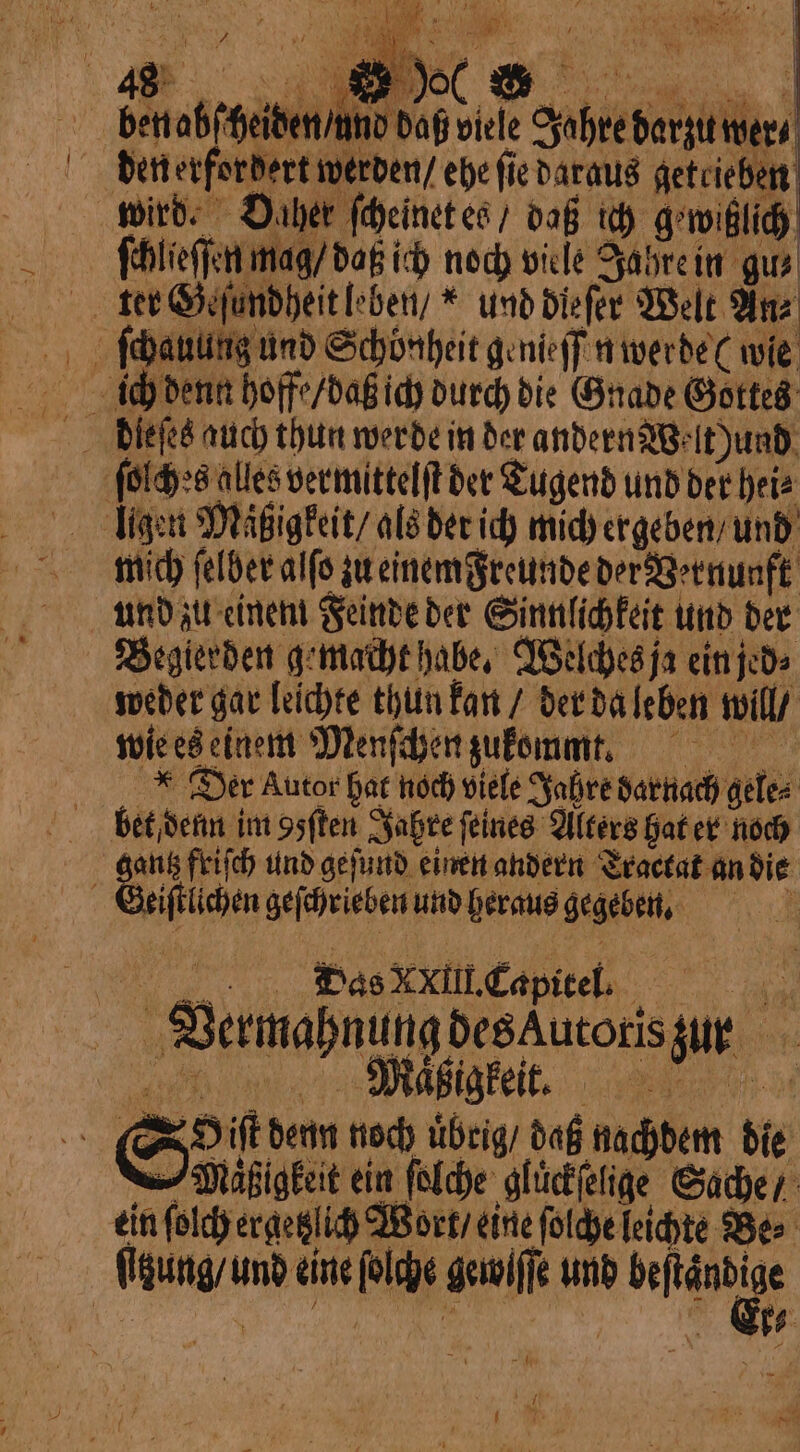 48 )o(
ben abſcheiden/und daß viele Jahre darzu wer⸗
den erfordert werden/ ehe ſie daraus getrieben
wird. Daher ſcheinet es / daß ich gewißlich
ſchlieſſen mag/ daß ich noch viele Jahre in gu⸗
ter Geſundheit leben/ * und dieſer Welt An⸗
ſchauung und Schoͤnheit genieſſen werde ( wie
ich denn hoffe/daß ich durch die Gnade Gottes
dieſes auch thun werde in der andern Welt)und
ſolches alles vermittelſt der Tugend und der hei⸗
ligen Maͤßigkeit/ als der ich mich ergeben/ und
mich ſelber alſo zu einem Freunde der Vernunft
und zu einem Feinde der Sinnlichkeit und der
Begierden gemacht habe. Welches ja ein jed⸗
weder gar leichte thun kan / der da leben will/
wie es einem Menſchen zukommt.
* Der Autor hat noch viele Jahre darnach gele⸗
bet, denn im 95ſten Jahre ſeines Alters hat er noch
gantz friſch und geſund einen andern Tractat an die
Geiſtlichen geſchrieben und heraus gegeben.
Das XXIII. Capitel.
Vermahnung des Autoris zur
Maͤßigkeit.
SO iſt denn noch uͤbrig/ daß nachdem die
Maͤßigkeit ein ſolche gluͤckſelige Sache /
ein ſolch ergetzlich Wort/ eine ſolche leichte Be⸗
ſitzung/ und eine ſolche gewiſſe und beſtaͤndige
Er⸗